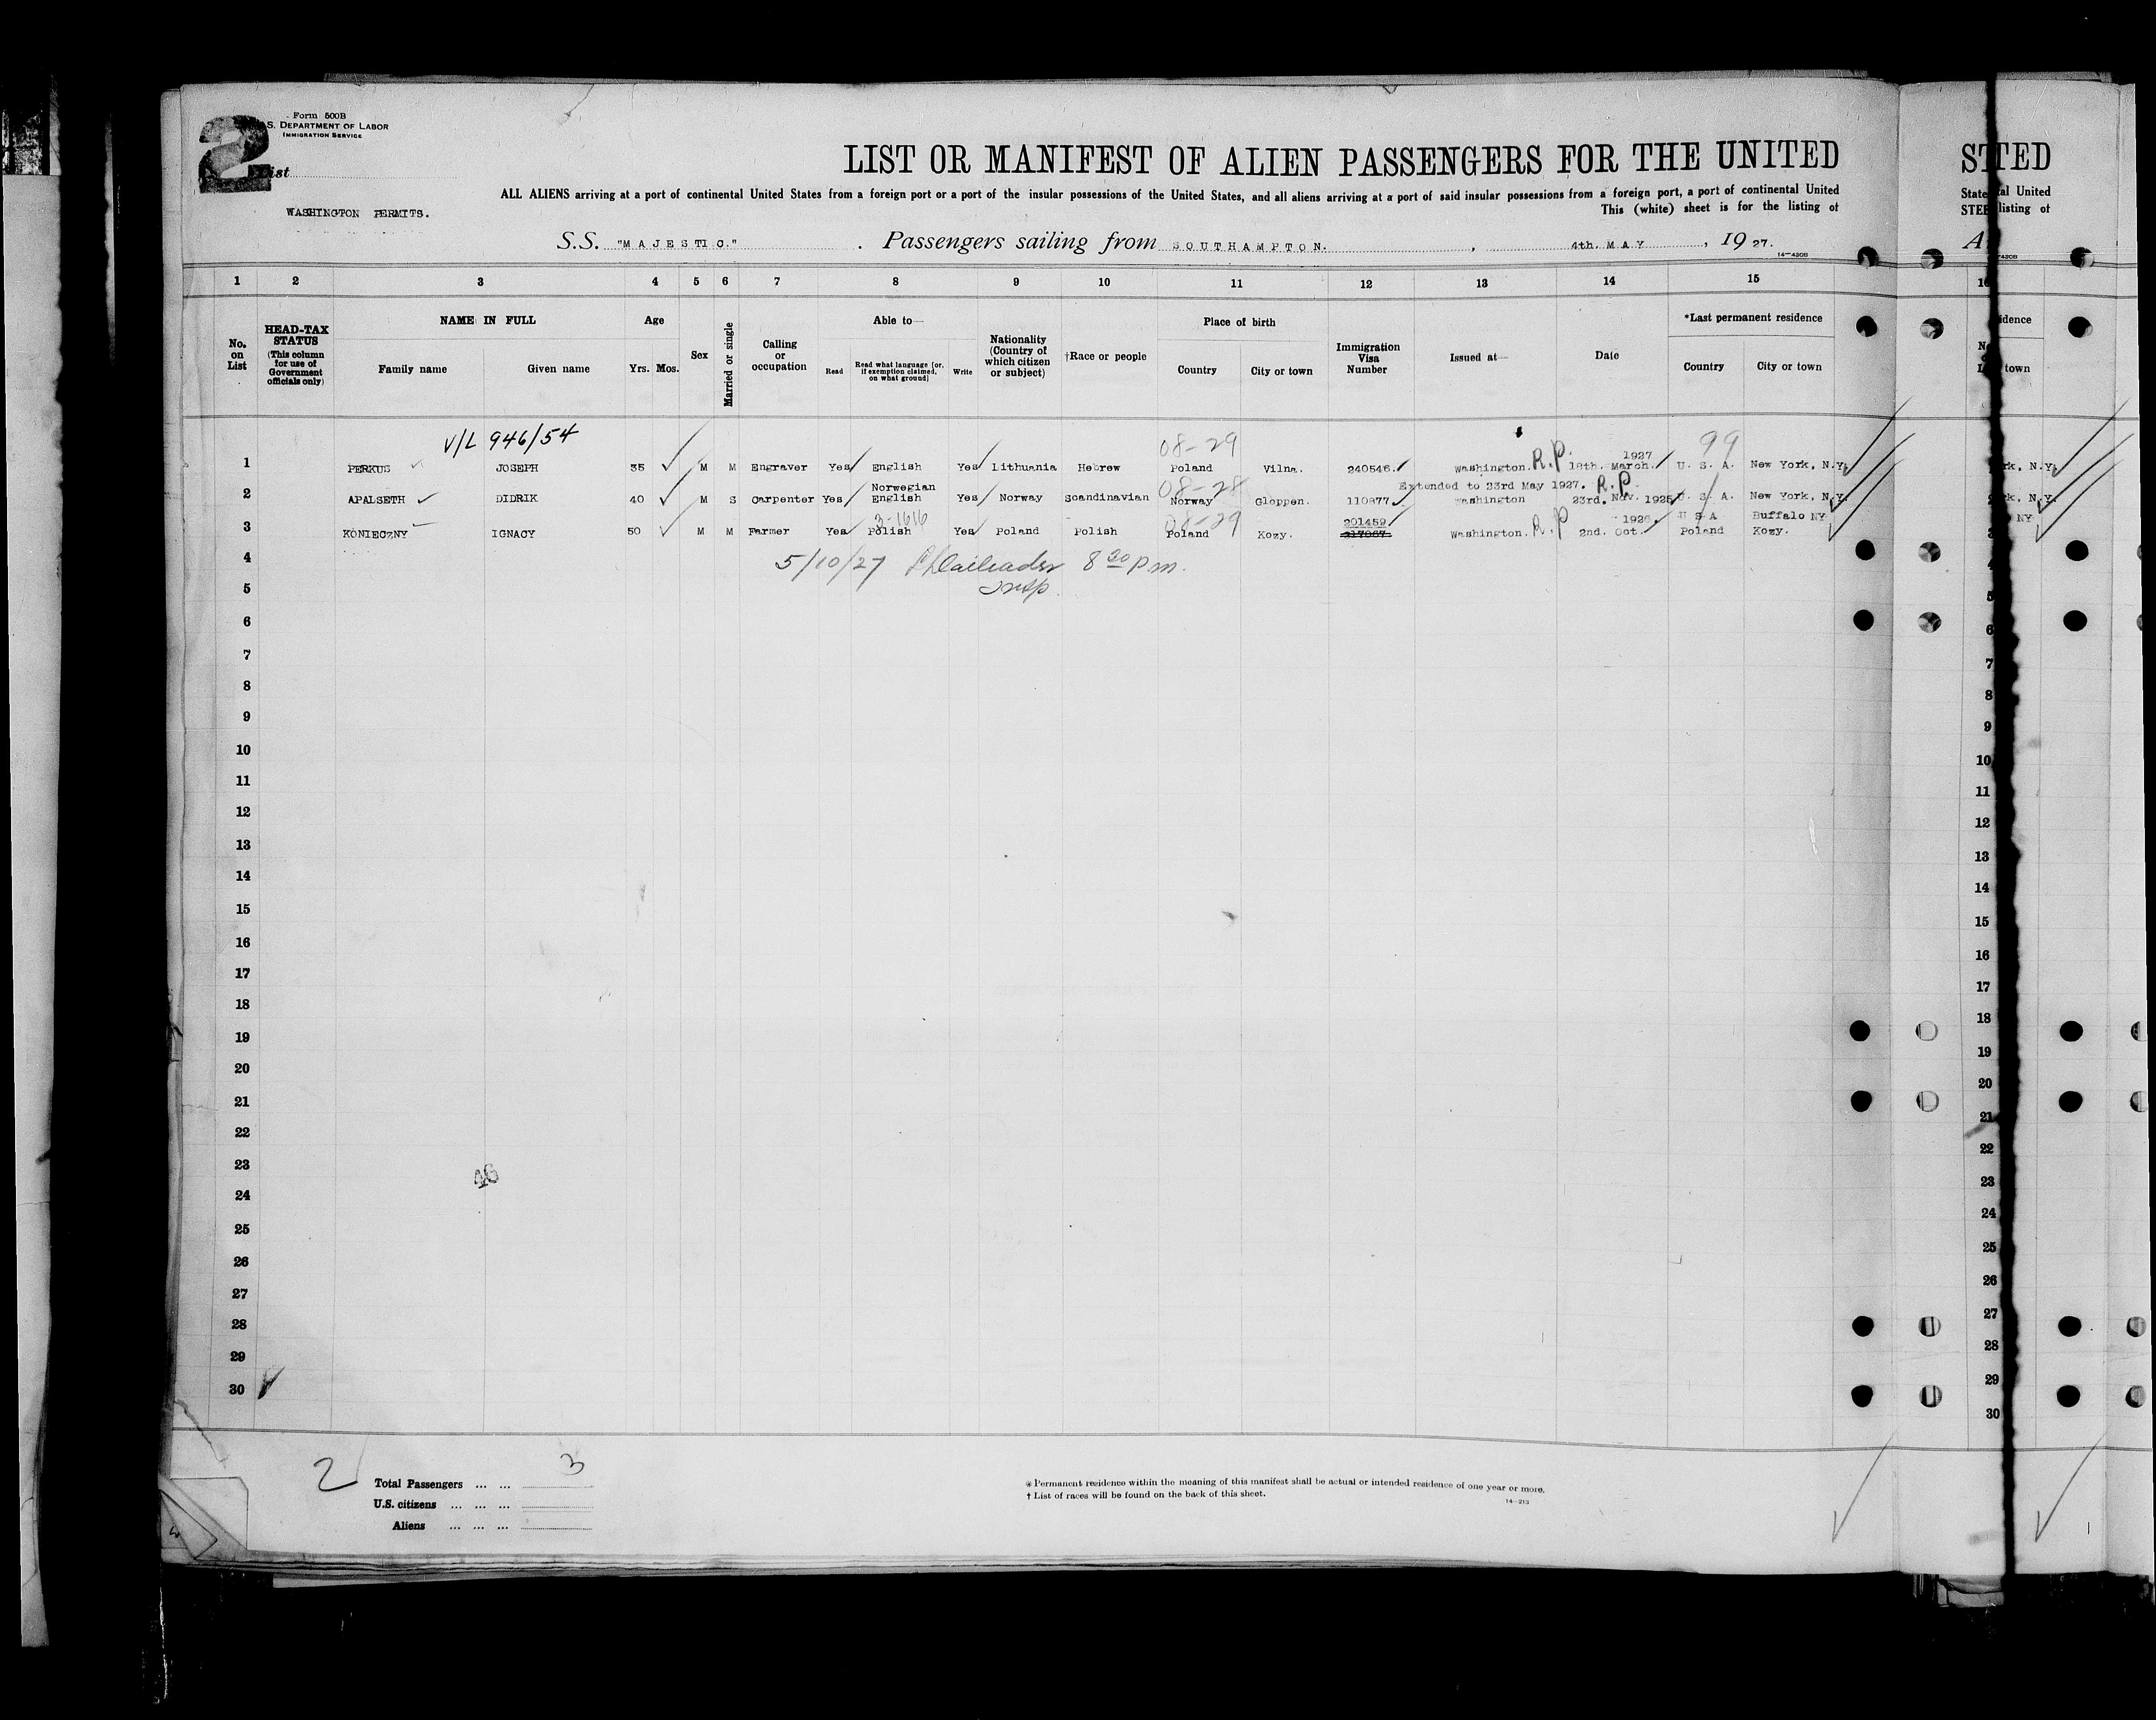 2
Form 500B
S. DEPARTMENT OF LABOR
IMMIGRATION SERVICE
List
WASHINGTON PERMITS.
LIST OR MANIFEST OF ALIEN PASSENGERS FOR THE UNITED
ALL ALIENS arriving at a port of continental United States from a foreign port or a port of the insular possessions of the United States, and all aliens arriving at a port of said insular possessions from a foreign port, a port of continental United
This (white) sheet is for the listing of
S.S. "MAJESTIC." . Passengers sailing from SOUTHAMPTON. , 4th. MAY , 1927.
14-420B
1 2 3 4 5 6 7 8 9 10 11 12 13 14 15
No. on List
HEAD-TAX STATUS
(This column for use of Government officials only)
NAME IN FULL
Family name Given name
Age
Yrs. Mos.
Sex
Married or single
Calling or occupation
Able to—
Read
Read what language [or, if exemption claimed, on what ground]
Write
Nationality (Country of which citizen or subject)
†Race or people
Place of birth
Country City or town
Immigration Visa Number
Issued at—
Date
*Last permanent residence
Country City or town
V/L 946/54 08-29 99
1927
1 PERKUS JOSEPH 35 M M Engraver Yes English Yes Lithuania Hebrew Poland Vilna. 240546. Washington. R.P. 18th. March. U. S. A. New York, N.Y.
Norwegian 08-28 Extended to 23rd May 1927. R.P.
2 APALSETH DIDRIK 40 M S Carpenter Yes English Yes Norway Scandinavian Norway Gloppen. 110877 Washington 23rd. Nov. 1925 U. S. A. New York, N.Y.
3-1616 08-29 201459 1926. U S A Buffalo NY
3 KONIECZNY IGNACY 50 M M Farmer Yes Polish Yes Poland Polish Poland Kozy. Washington. R.P 2nd. Oct. Poland Kozy.
4
5/10/27 8 30 P m.
Insp.
5
6
7
8
9
10
11
12
13
14
15
16
17
18
19
20
21
22
23
46
24
25
26
27
28
29
30
2 Total Passengers ... ... 3
U.S. citizens ... ... ...
Aliens ... ... ...
* Permanent residence within the meaning of this manifest shall be actual or intended residence of one year or more.
† List of races will be found on the back of this sheet.
14-213
STTED
State al United
STEE listing of
idence
town
rk, N.Y.
k, N.Y.
NY
5
6
7
8
9
10
11
12
13
14
15
16
17
18
19
20
21
22
23
24
25
26
27
28
29
30